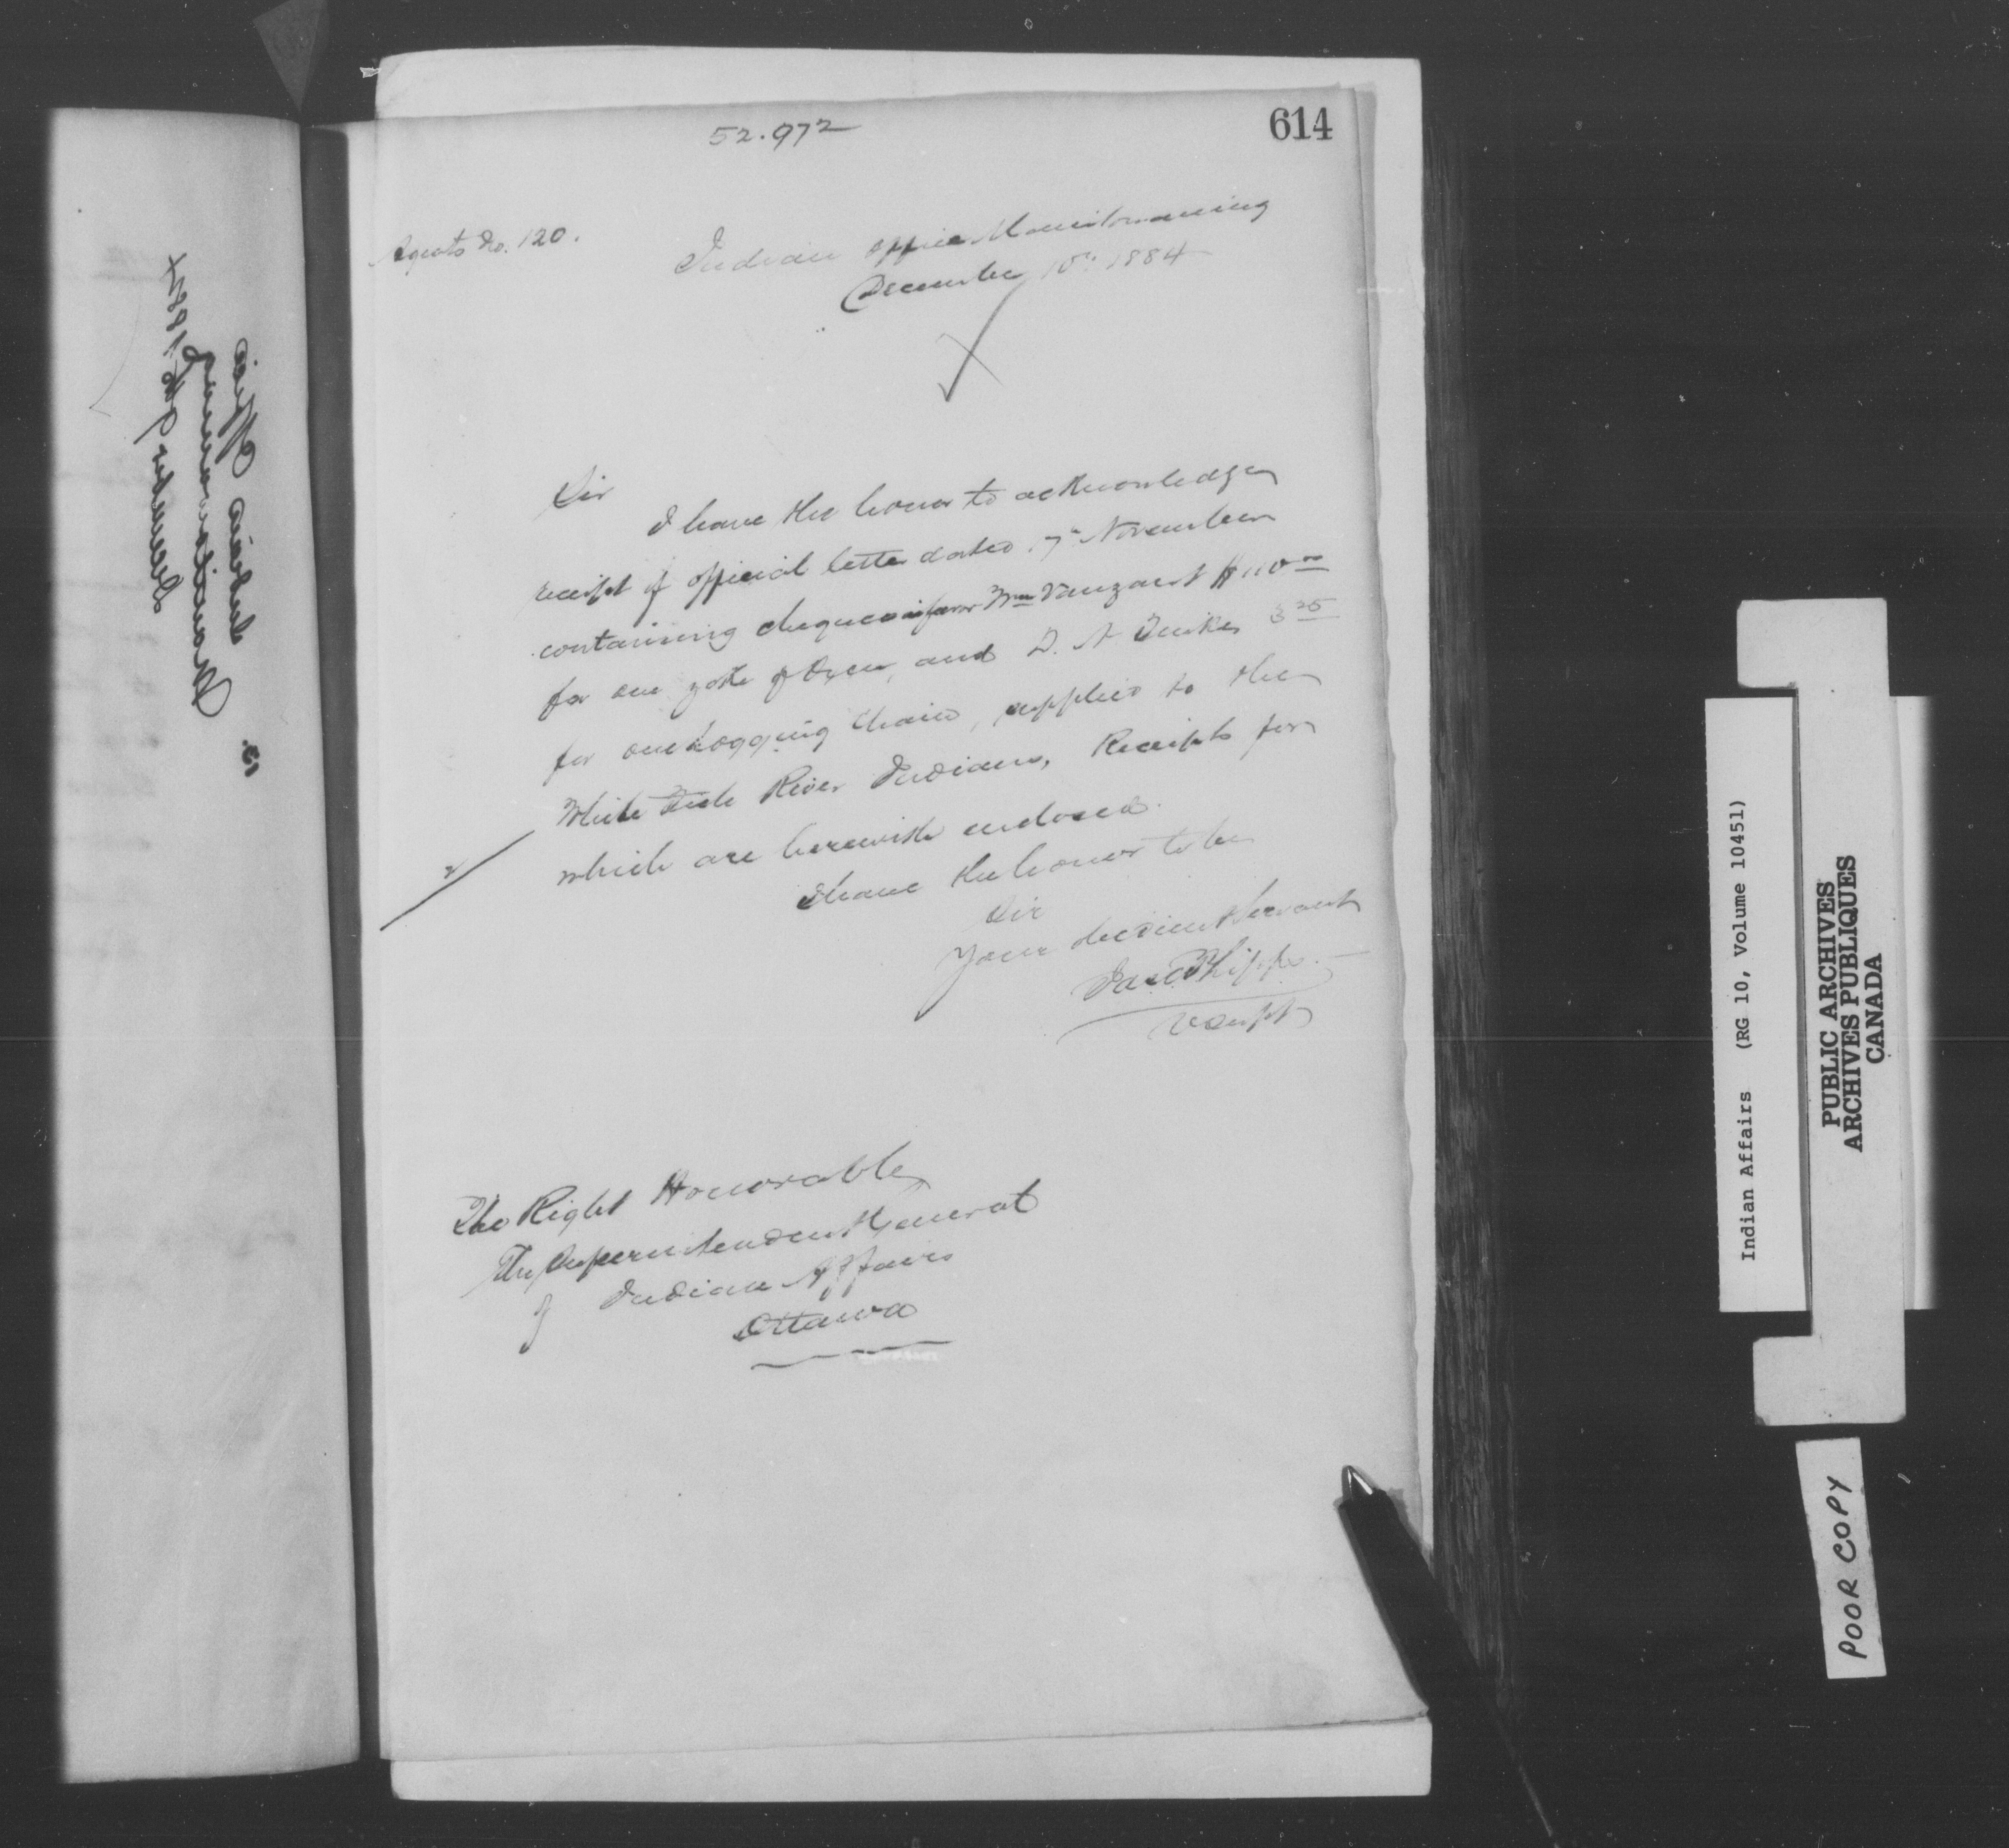 614
52.972
Agents No. 120.
Indian Office Manitowaning
December 10th 1884
Sir
I have the honor to acknowledge
receipt of official letter dated 7th November
containing cheques in favor Wm Vanzant $110 00
for one yoke of Oxen, and D. A. 3 25
for one Logging Chain, supplied to the
White Fish River Indians, Receipts for
which are herewith enclosed.
I have the honor to be
Sir
Your obedient Servant
Jas C Phipps
V Supt
The Right Honorable
The Superintendent General
of Indian Affairs
Ottawa
Indian Office
Manitowaning
December 9th 1884
13.
Indian Affairs (RG 10, Volume 10451)
PUBLIC ARCHIVES
ARCHIVES PUBLIQUES
CANADA
POOR COPY